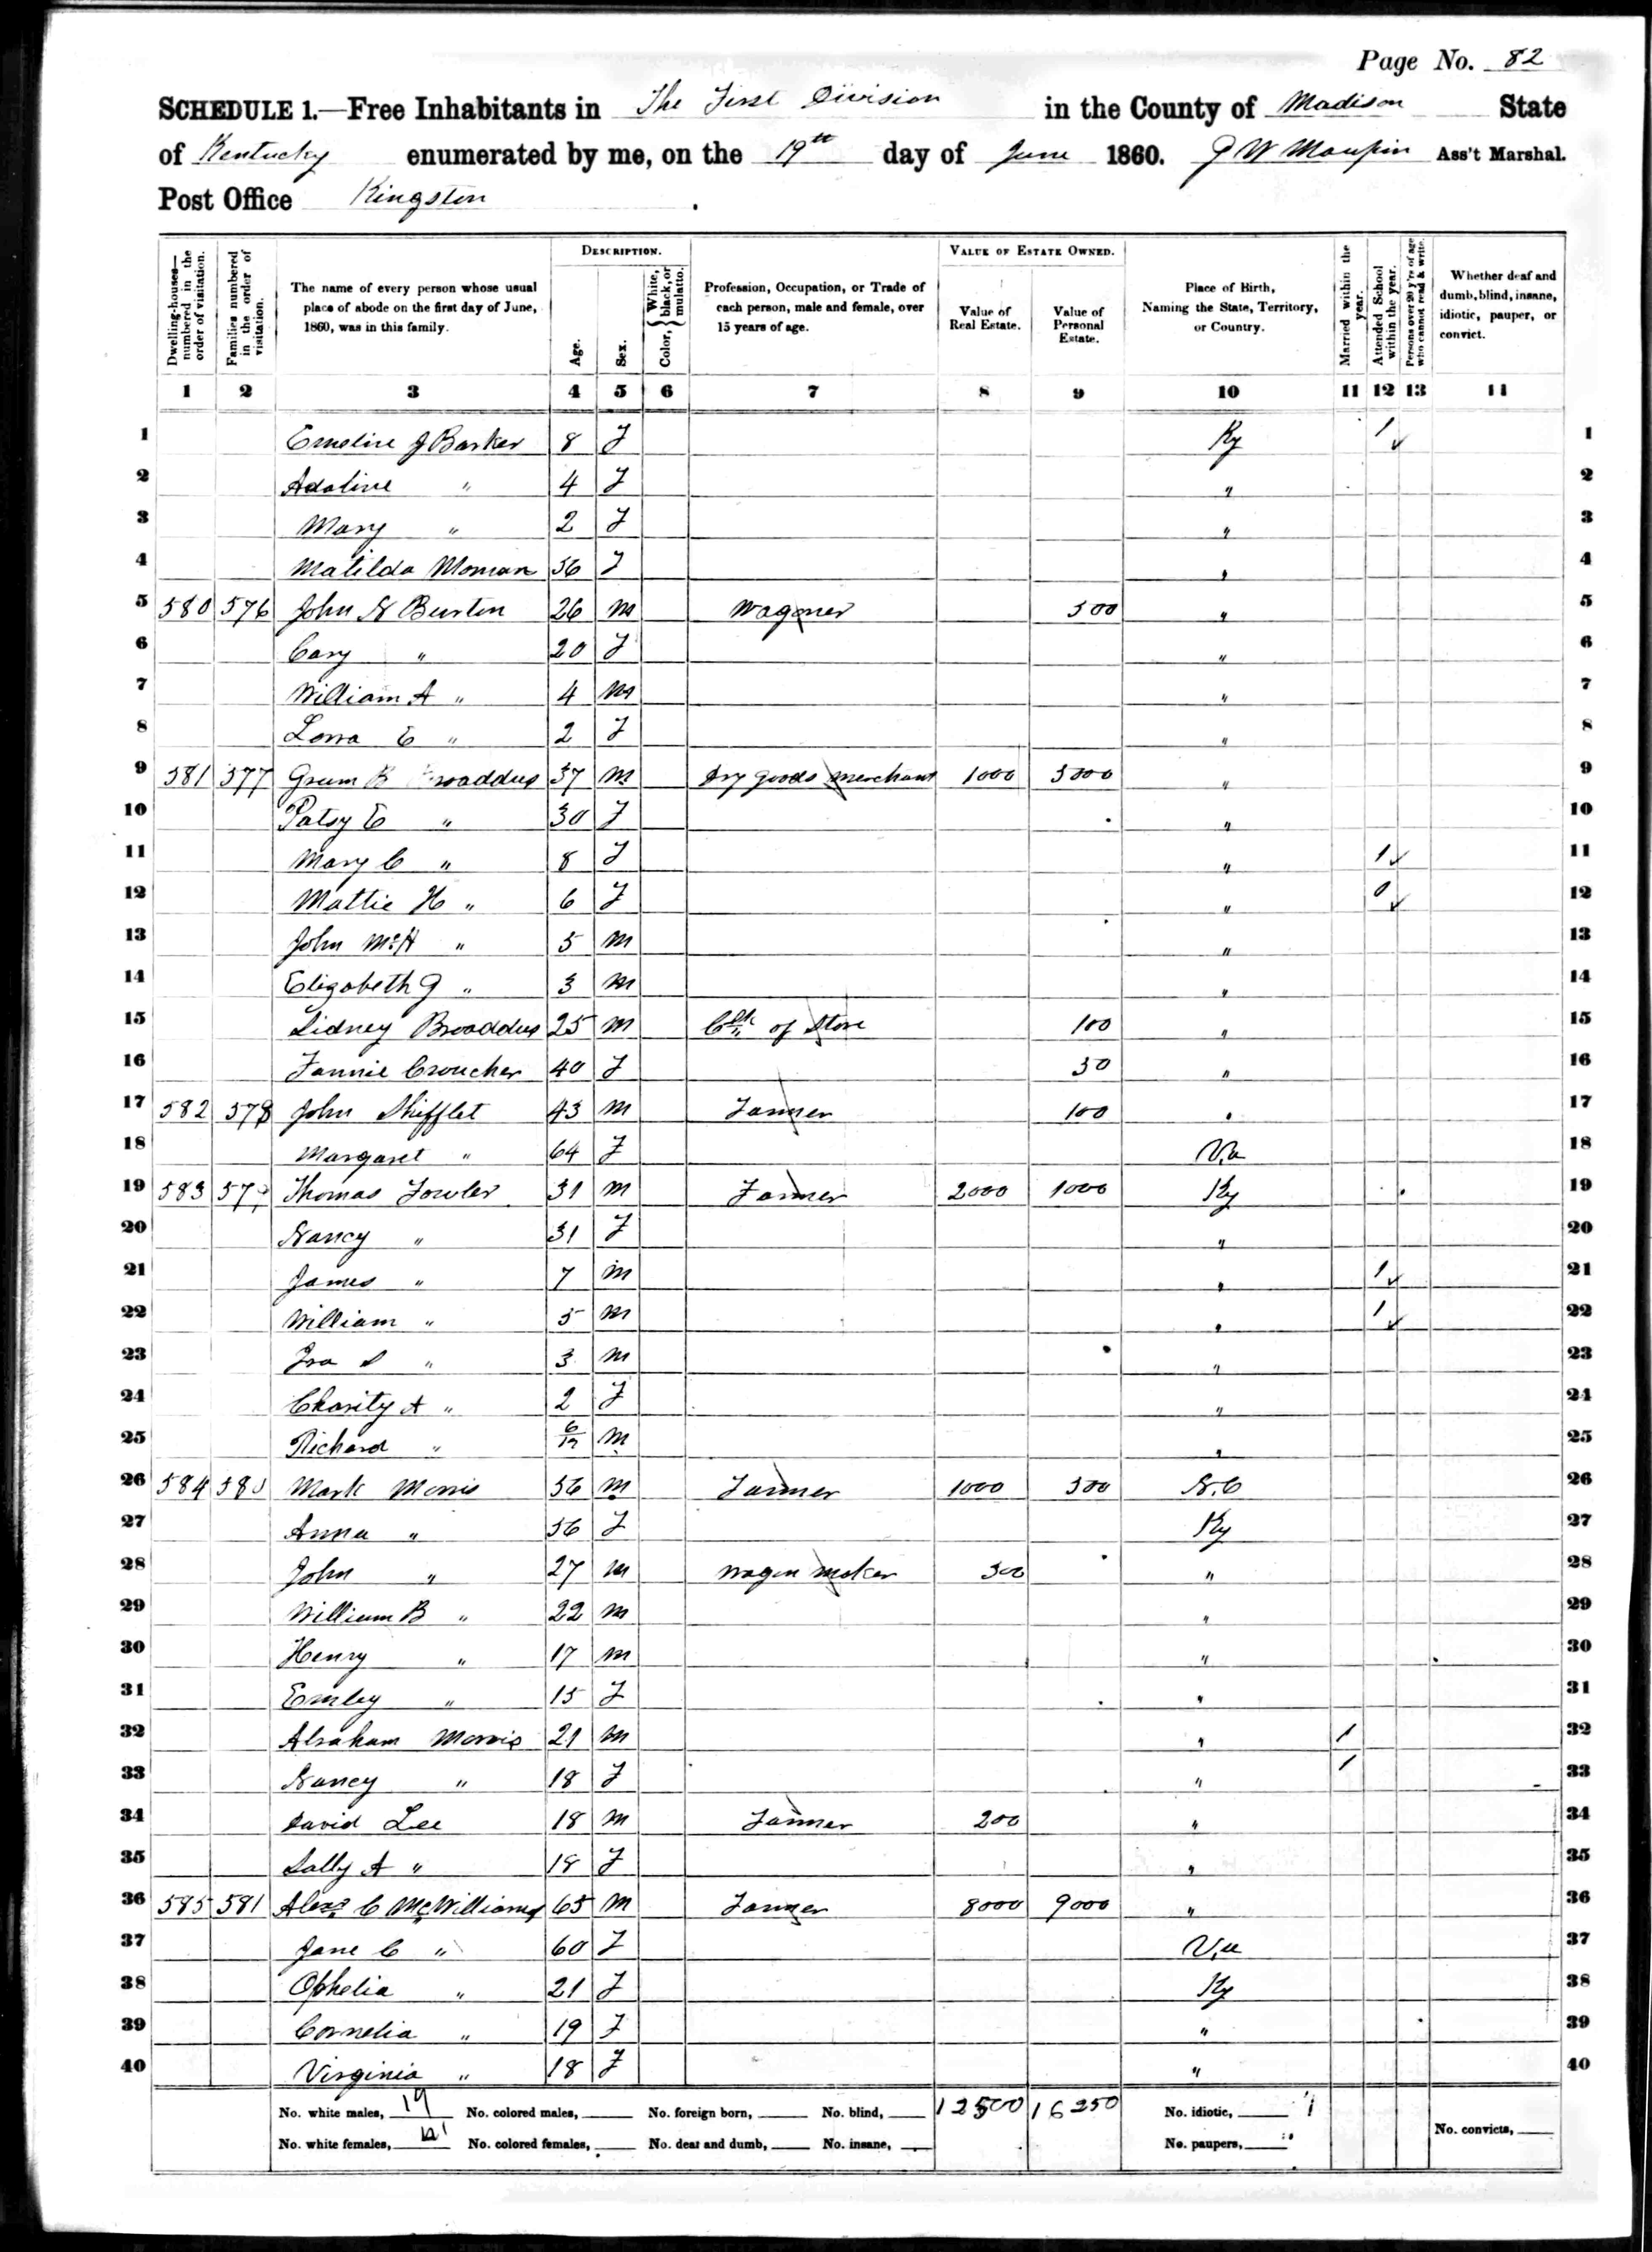 Page No. 82
SCHEDULE 1.—Free Inhabitants in The First Division in the County of Madison State
of Kentucky enumerated by me, on the 19th day of June 1860. G W Maupin Ass't Marshal.
Post Office Kingston
Dwelling-houses—numbered in the order of visitation.
Families numbered in the order of visitation.
The name of every person whose usual place of abode on the first day of June, 1860, was in this family.
DESCRIPTION.
Age.
Sex.
Color, { White, black, or mulatto.
Profession, Occupation, or Trade of each person, male and female, over 15 years of age.
VALUE OF ESTATE OWNED.
Value of Real Estate.
Value of Personal Estate.
Place of Birth, Naming the State, Territory, or Country.
Married within the year.
Attended School within the year.
Persons over 20 y'rs of age who cannot read & write.
Whether deaf and dumb, blind, insane, idiotic, pauper, or convict.
1 2 3 4 5 6 7 8 9 10 11 12 13 14
1 Emeline J Barker 8 F Ky 1 1
2 Adaline " 4 F " 2
3 Mary " 2 F " 3
4 Matilda Moman 56 F " 4
5 580 576 John N Burton 26 m Wagoner 300 " 5
6 Cary " 20 F " 6
7 William A " 4 m " 7
8 E " 2 F " 8
9 581 577 B Broaddus 37 m Dry goods merchant 1000 5000 " 9
10 Patsy E " 30 F " 10
11 Mary C " 8 F " 1 11
12 Mattie H " 6 F " 12
13 John McH " 5 m " 13
14 Elizabeth G " 3 m " 14
15 Sidney Broaddus 25 m Clk of Store 100 " 15
16 Fannie Croucher 40 F 50 " 16
17 582 578 John Shifflet 43 m Farmer 100 " 17
18 Margaret " 64 F Va 18
19 583 579 Thomas Fowler 31 m Farmer 2000 1000 Ky 19
20 Nancy " 31 F " 20
21 James " 7 m " 1 21
22 William " 5 m " 1 22
23 Ira S " 3 m " 23
24 Charity A " 2 F " 24
25 Richard " 6/12 m " 25
26 584 580 Mark Morris 56 m Farmer 1000 500 N.C 26
27 Anna " 56 F Ky 27
28 John " 27 m Wagon maker 300 " 28
29 William B " 22 m " 29
30 Henry " 17 m " 30
31 Emley " 15 F " 31
32 Abraham Morris 21 m " 1 32
33 Nancy " 18 F " 1 33
34 David Lee 18 m Farmer 200 " 34
35 Sally A " 18 F " 35
36 585 581 Alexr C McWilliams 65 m Farmer 8000 9000 " 36
37 Jane C " 60 F Va 37
38 Ophelia " 21 F Ky 38
39 Cornelia " 19 F " 39
40 Virginia " 18 F " 40
No. white males, 19 No. colored males, No. foreign born, No. blind, 12500 16250 No. idiotic,
No. white females, 21 No. colored females, No. deaf and dumb, No. insane, No. paupers, No. convicts,